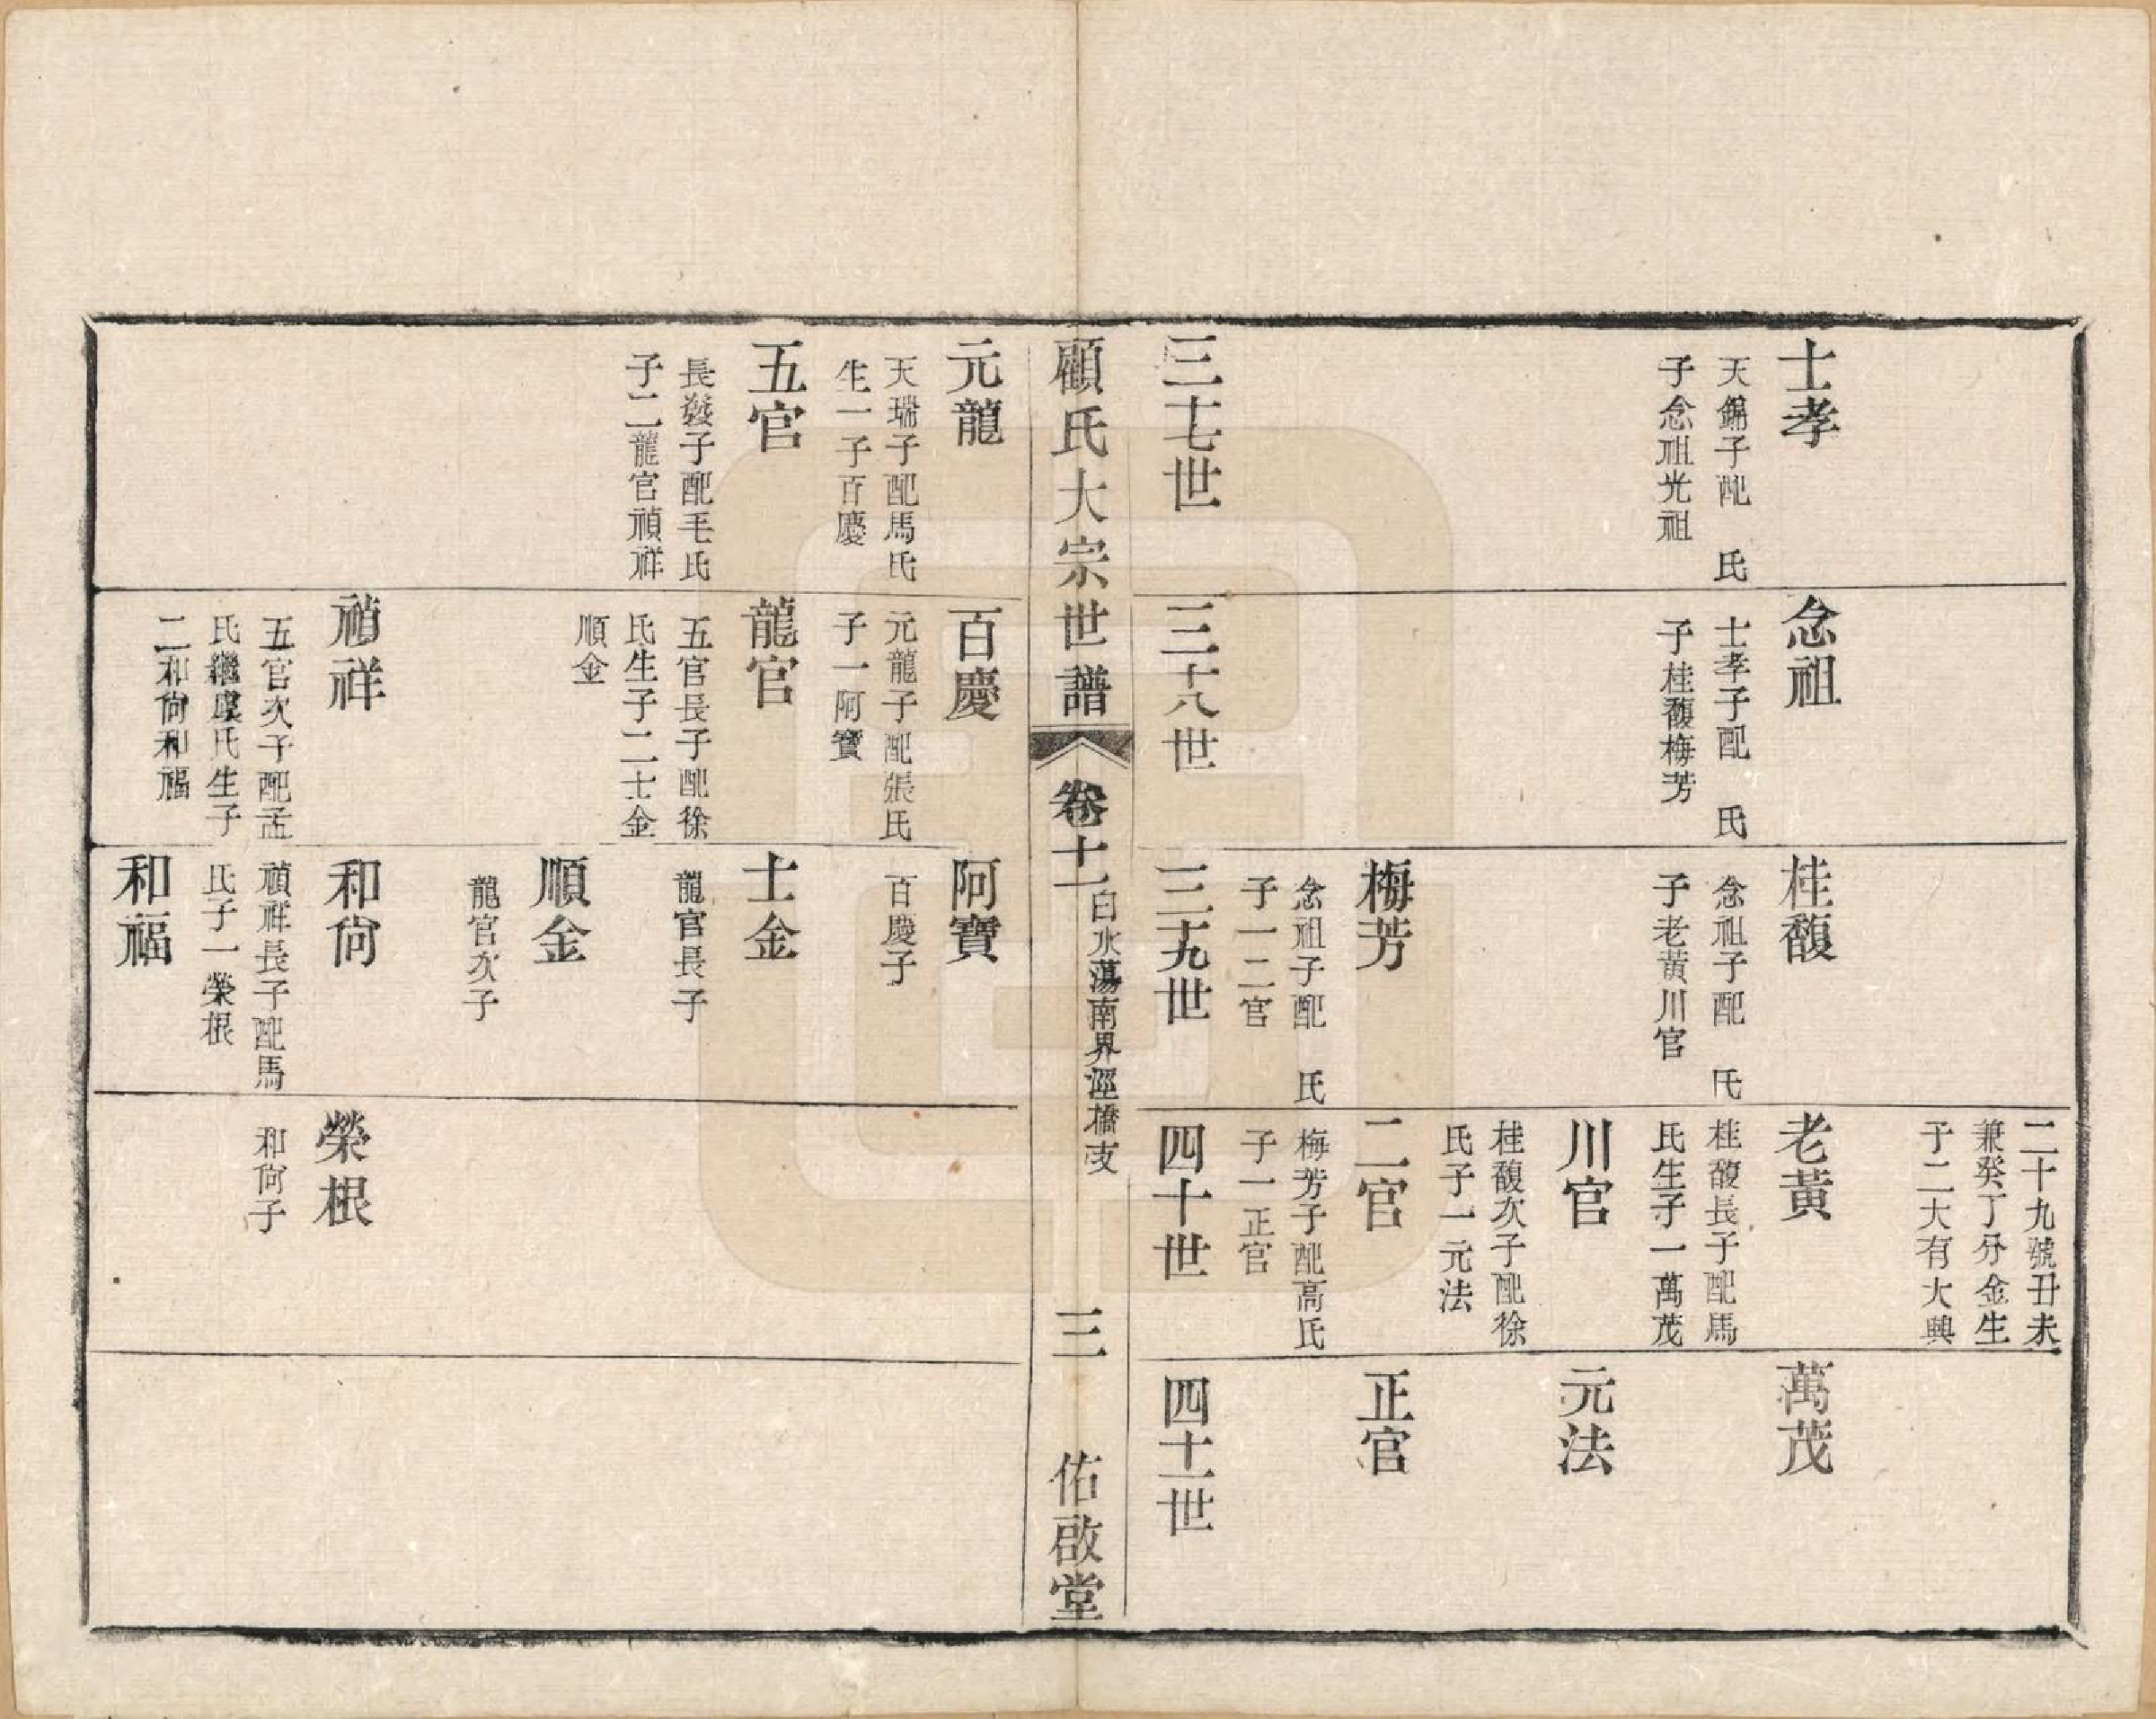 士孝
天錫子配　氏
子念祖光祖
三七世
念祖
士孝子配　氏
子桂馥梅芳
三十八世
桂馥
念祖子配　氏
子老黃川官
梅芳
念祖子配　氏
子一二官
三十九世
二十九號丑未
兼癸丁分金生
子二大有大興
老黃
桂馥長子配馬
氏生子一萬茂
川官
桂馥次子配徐
氏子一元法
二官
梅芳子配高氏
子一正官
四十世
萬茂
元法
正官
四十一世
顧氏大宗世譜
卷十一
白水蕩南界涇橋支
三
佑啟堂
元龍
天瑞子配馬氏
生一子百慶
五官
長發子配毛氏
子二龍官禎祥
百慶
元龍子配張氏
子一阿寶
龍官
五官長子配徐
氏生子二士金
順金
禎祥
五官次子配孟
氏繼虞氏生子
二和尙和福
阿寶
百慶子
士金
龍官長子
順金
龍官次子
和尙
禎祥長子配馬
氏子一榮根
和福
榮根
和尙子